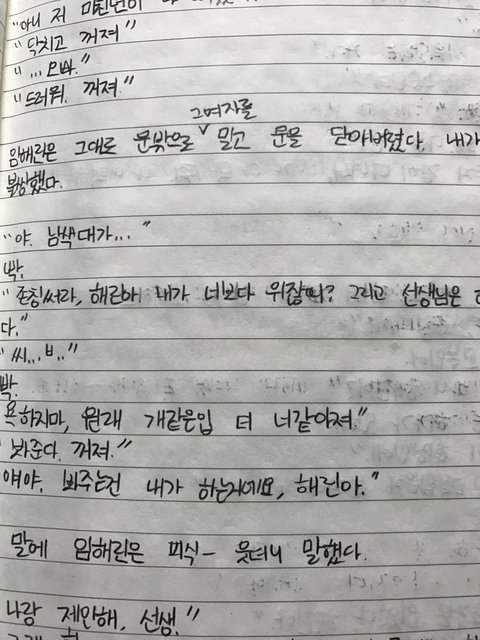 "아니 저 미친년이
"닥치고 꺼져"
"...오빠."
"드러워. 꺼져"
그여자를
임해린은 그대로 문밖으로 ∨ 밀고 문을 닫아버렸다. 내가
불쌍했다.
"야. 남색대가..."
빡.
"존칭써라, 해린아 내가 너보다 위잖니? 그리고 선생님은
다."
"씨...ㅂ.."
빡.
욕하지마, 원래 개같은입 더 너같아져."
봐준다. 꺼져."
얘야. 봐주는건 내가 하는거에요, 해린아."
말에 임해린은 피식- 웃더니 말했다.
나랑 제안해, 선생."